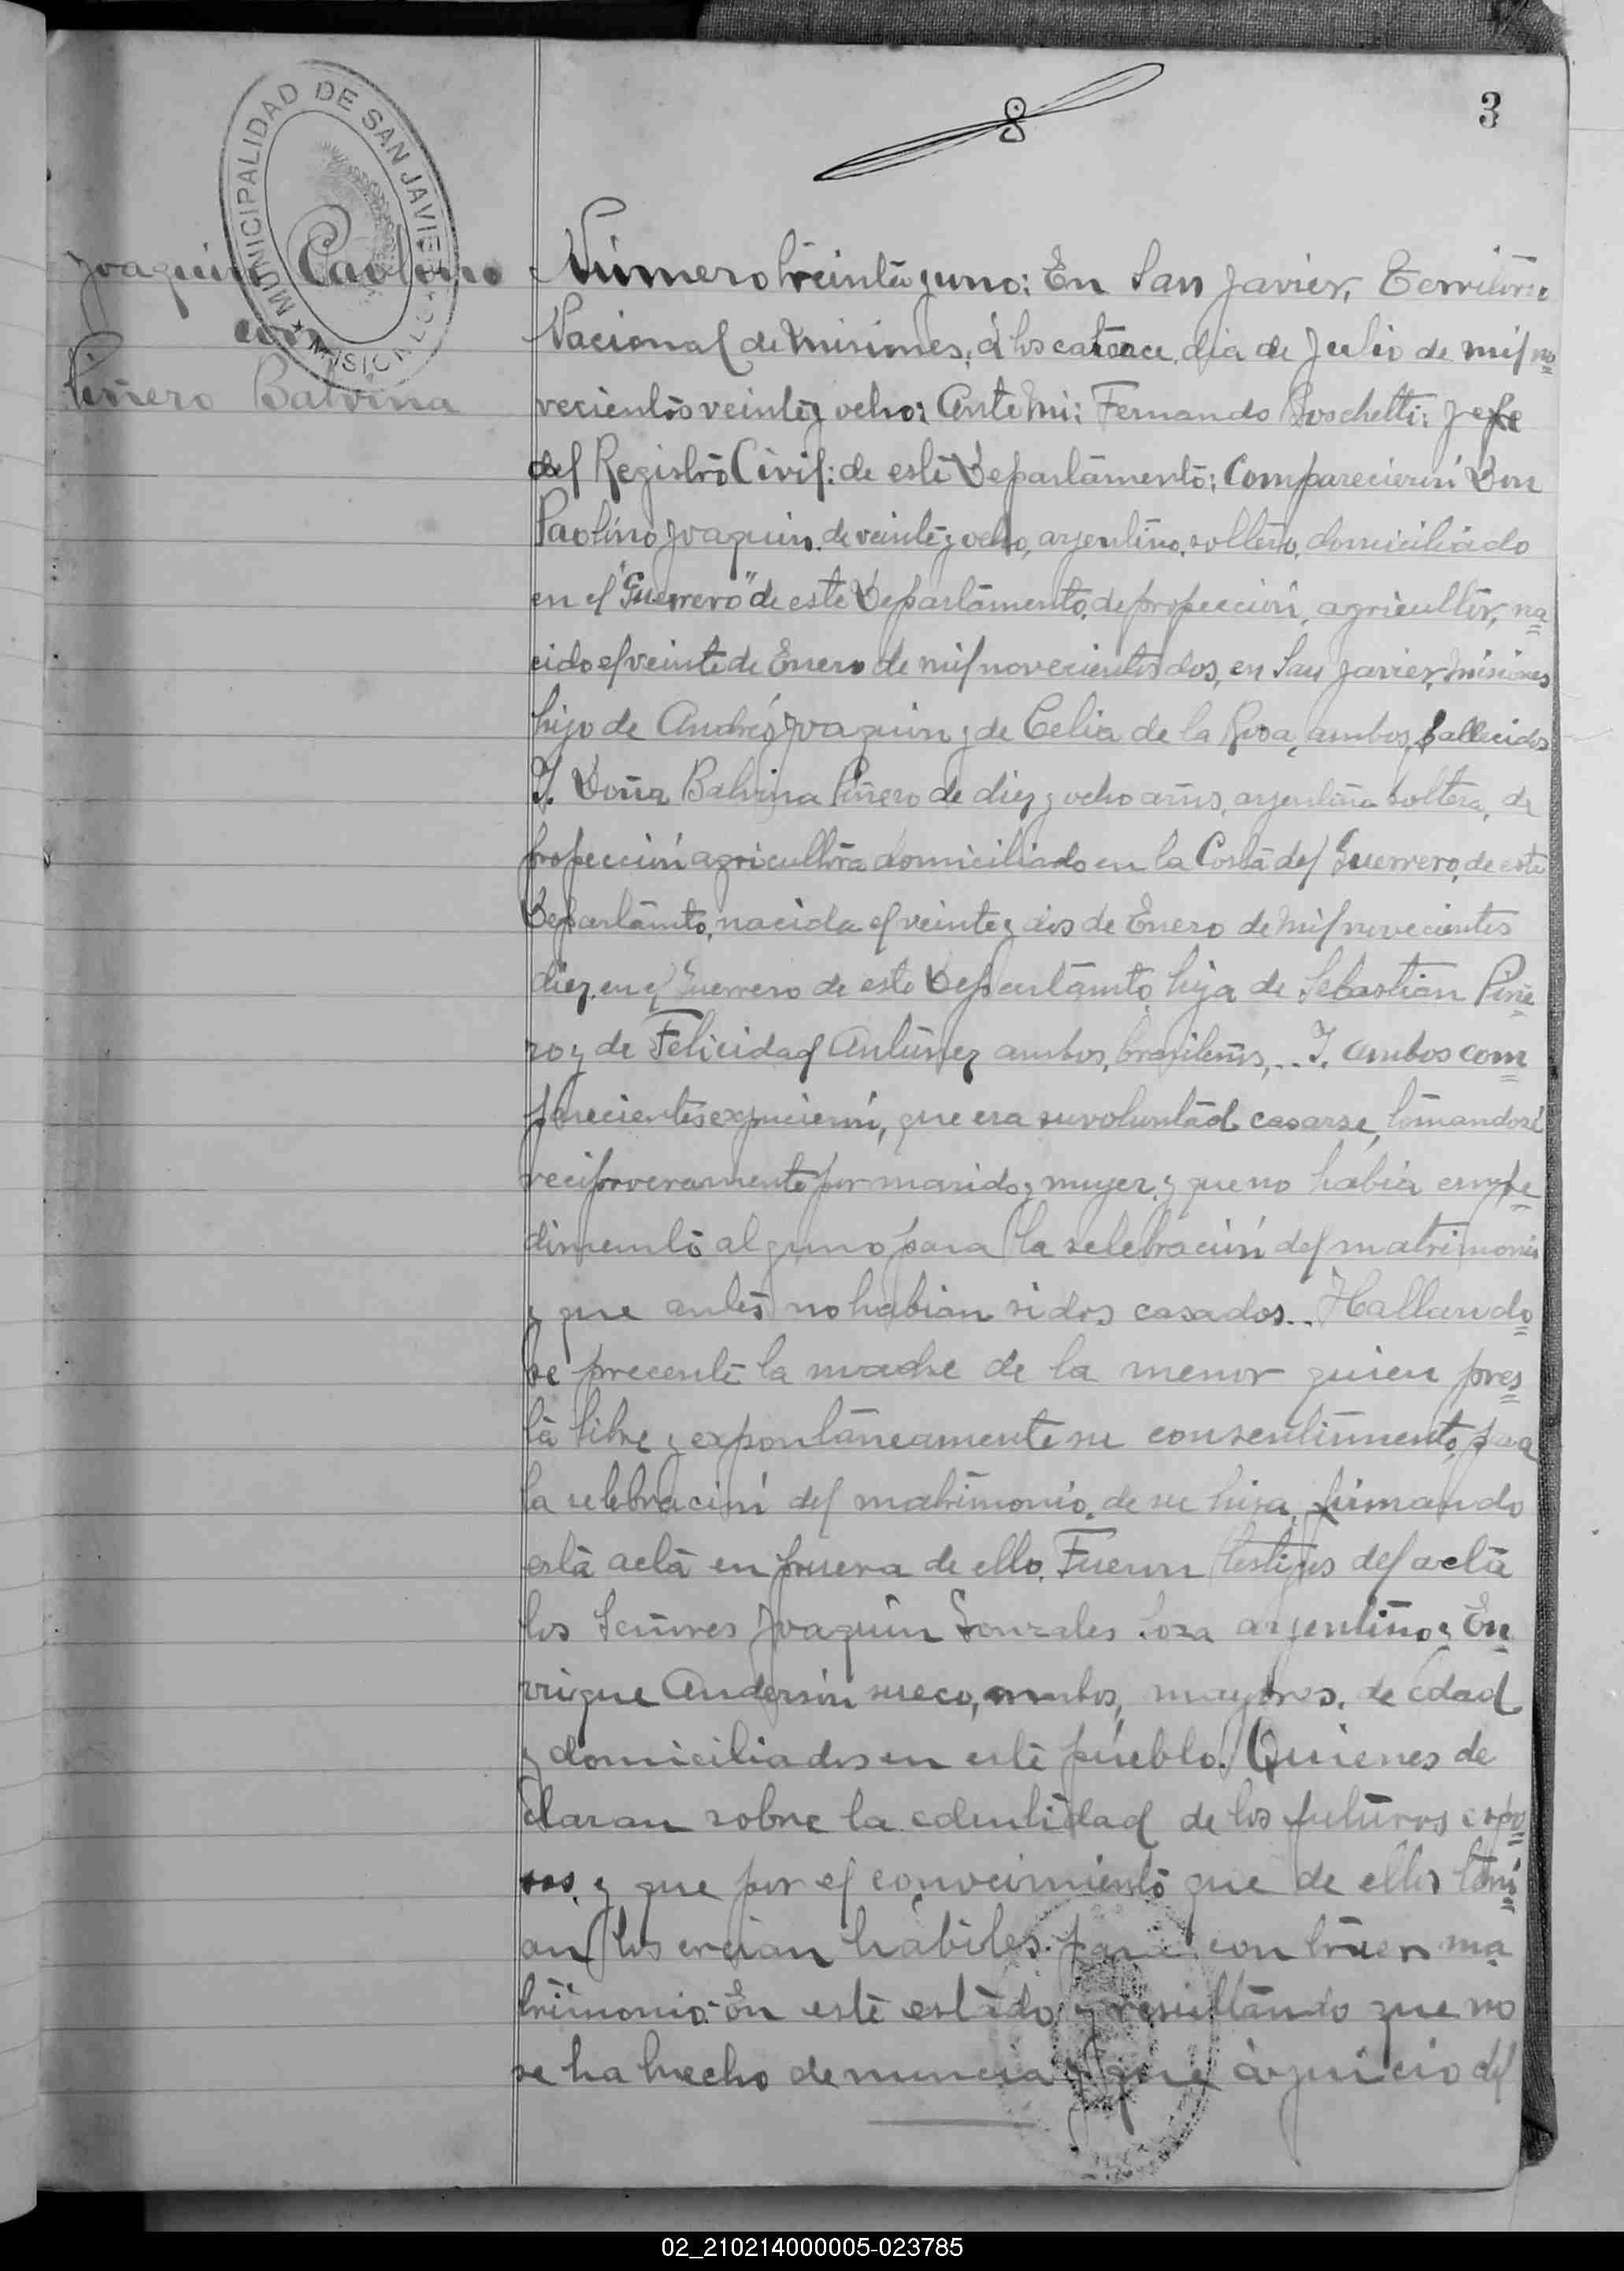 3
MUNICIPALIDAD DE SAN JAVIER
MISIONES
Joaquin Paolino
con
Piñero Balvina
Número treinta y uno: En San Javier, Territorio
Nacional de Misiones, á los catorce dia de Julio de mil no
vecientos veinte y ocho: Ante mi: Fernando Boschetti: Jefe
del Registro Civil: de este Departamento: Comparecierón Don
Paolino Joaquin de veinte y ocho, argentino, soltero, domiciliado
en el "Guerrero" de este Departamento, de profeción, agricultor, na
cido el veinte de Enero de mil novecientos dos, en San Javier, Misiones
hijo de Andrés Joaquin y de Celia de la Rosa, ambos fallecidos
Y. Doña Balvina Piñero de diez y ocho años, argentina soltera, de
profección agricultora domiciliado en la Costa del Guerrero, de este
Departamto, nacida el veinte y dos de Enero de mil novecientos
diez, en el Guerrero de este Departamto, hija de Sebastian Piñe
ro y de Felicidad Antúnez ambos, brasileños,... Y. ambos com
parecientes expucierón, que era su voluntad casarse, tomandosé
reciproveramente por marido y muger, y que no habia empe
dimento alguno para la selebración del matrimonio
y que antes no habian sidos casados.. Hallando
se precente la madre de la menor quien pres
ta libre y expontáneamente su consentimento, para
la selebración del matrimonio, de su hija, firmando
esta acta en prueva de ello. Fueron testigos del acta
los Señores Joaquin Gonzales Soza argentino y En
rrique Andersón sueco, ambos, mayores, de edad
y domiciliados en este pueblo. Quienes de
claran sobre la edentidad de los futuros espo
sos, y que por el conocimiento que de ellos tení
an los creian hábiles para contraer ma
trimonio. En este estado y resultando que no
se ha hecho denuncia y que á juicio del
02_210214000005-023785